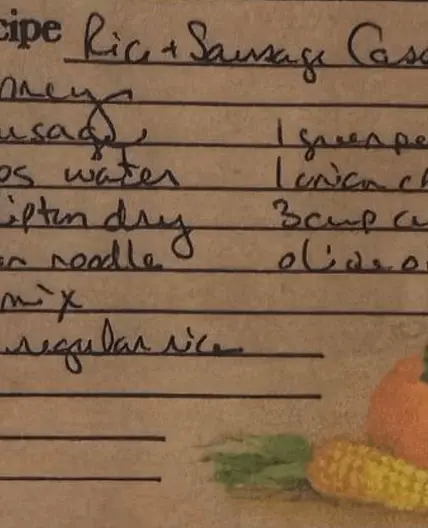 cipe Ric + Sausage Cass
usage, 1 green pe
ps water 1 onion ch
ipton dry 3 cup cu
en noodle olive o
mix
regular rice